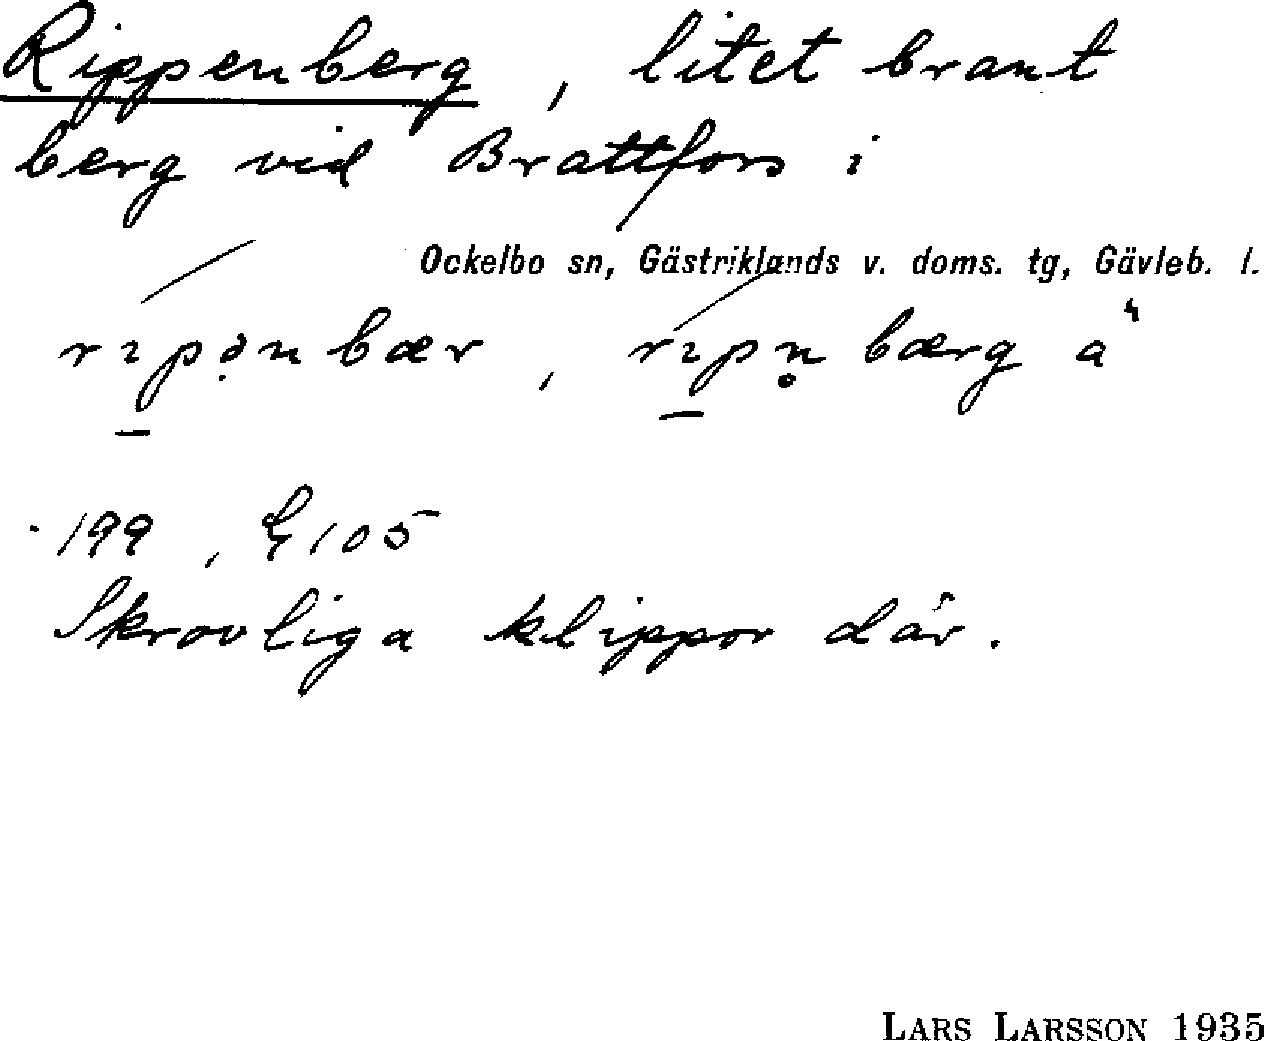 Rippenberg, litet brant
berg vid Brattfors i
Ockelbo sn, Gästriklands v. doms. tg, Gävleb. l.
rɪpənbær, rɪpn̥ bærg a"
199, G105
Skrovliga klippor där.
LARS LARSSON 1935